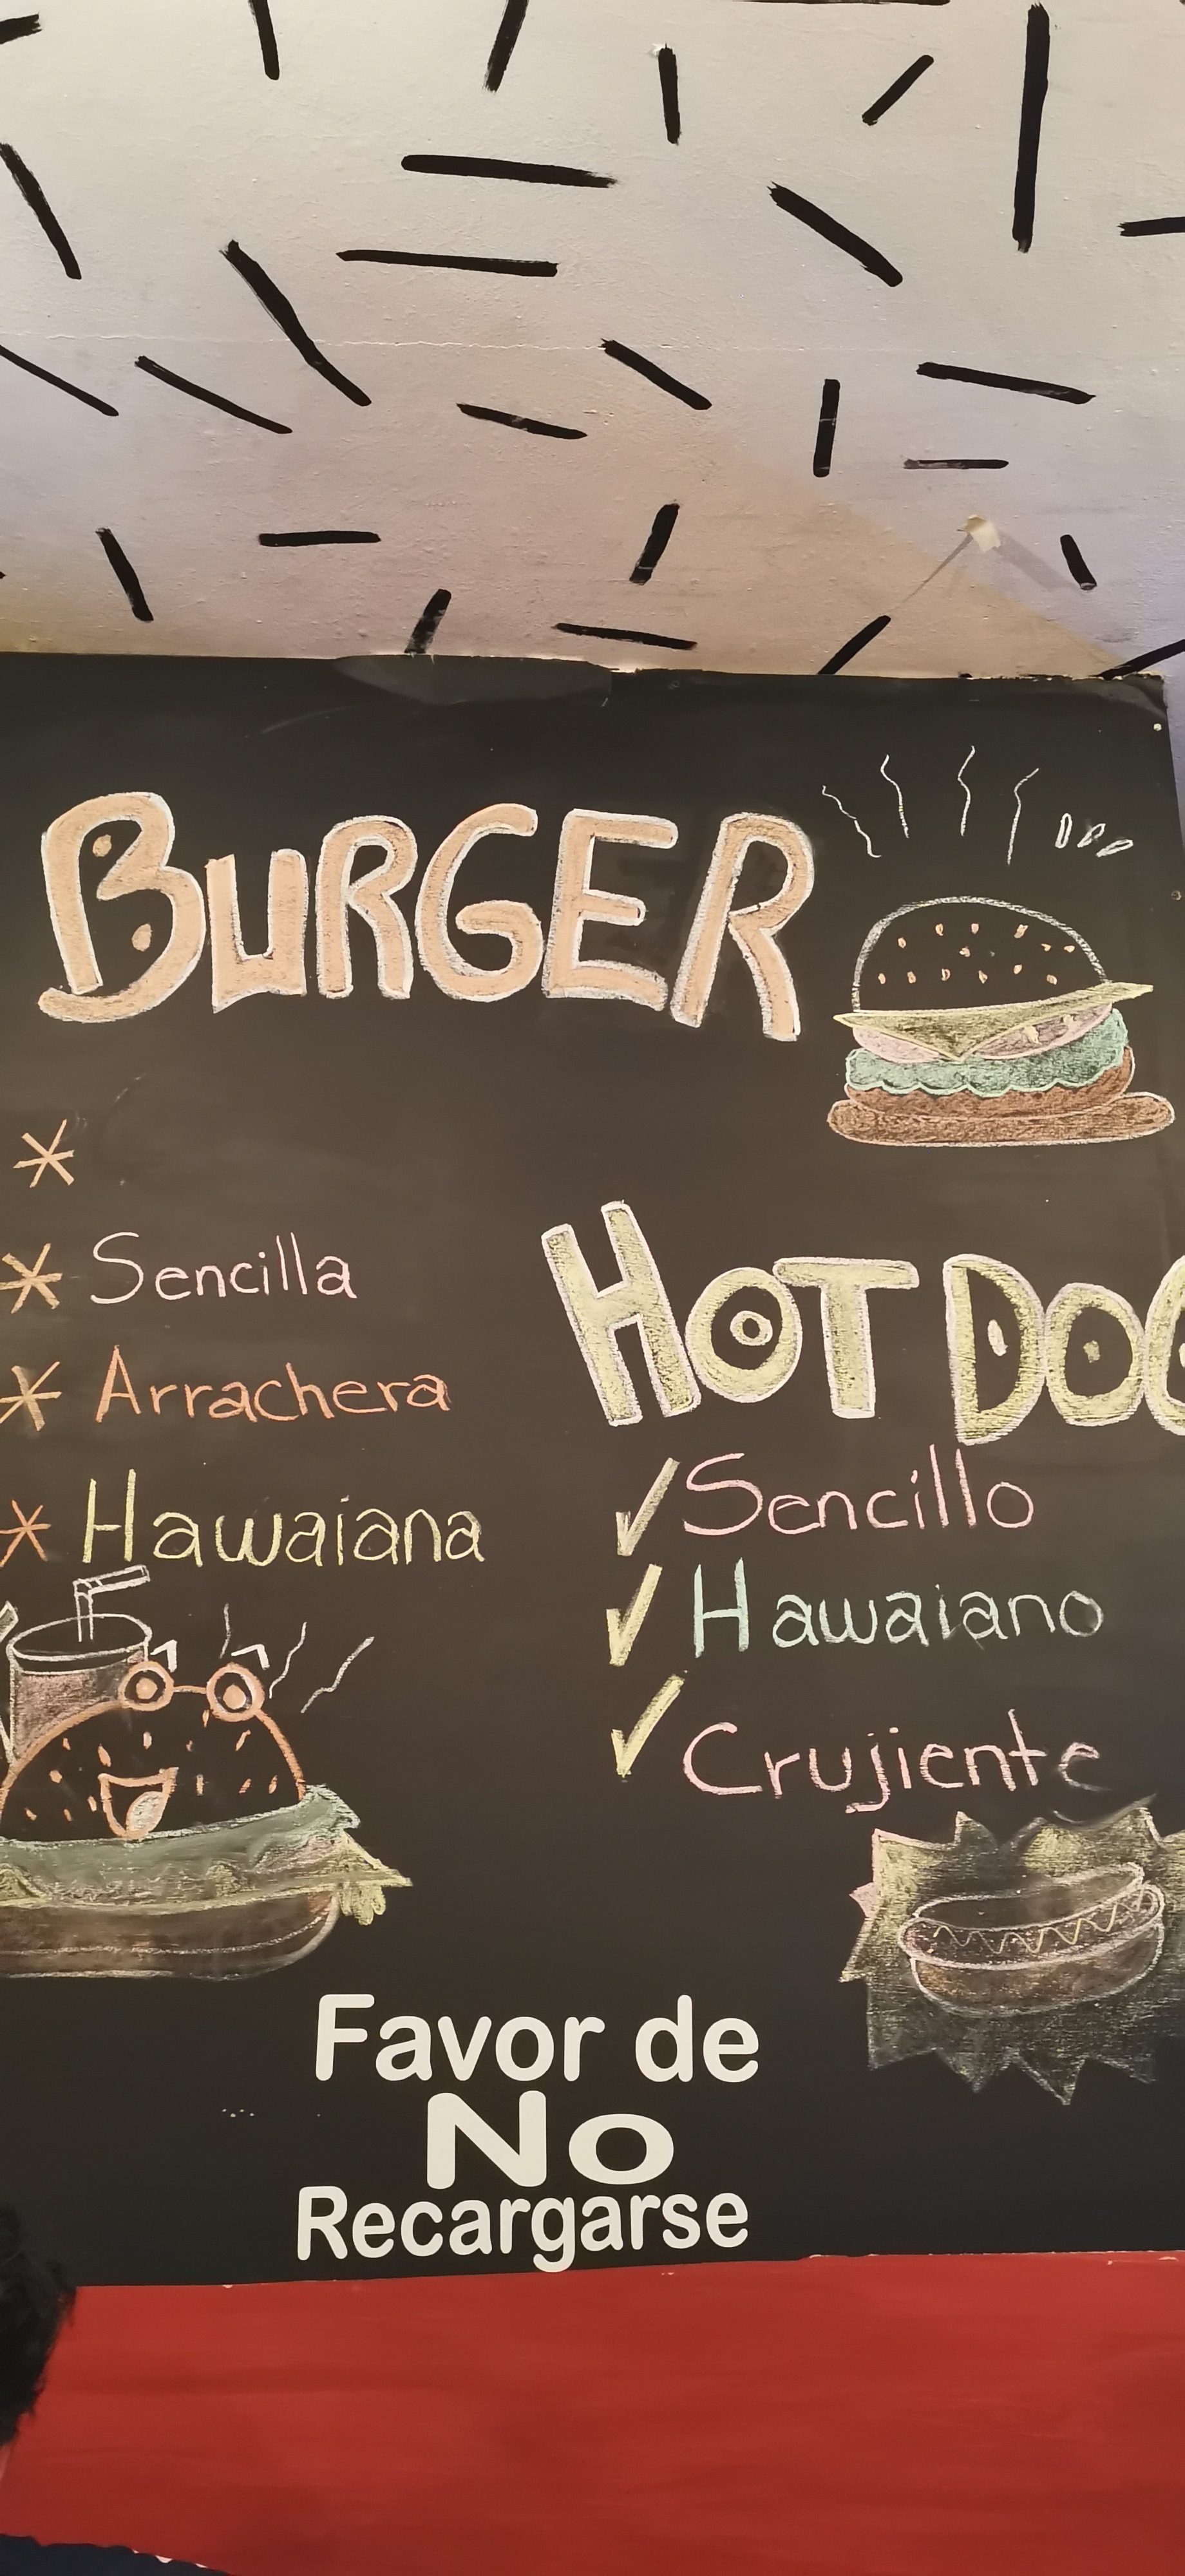 BURGER
*
* Sencilla
* Arrachera
* Hawaiana
HOT DOG
✓ Sencillo
✓ Hawaiano
✓ Crujiente
Favor de
No
Recargarse